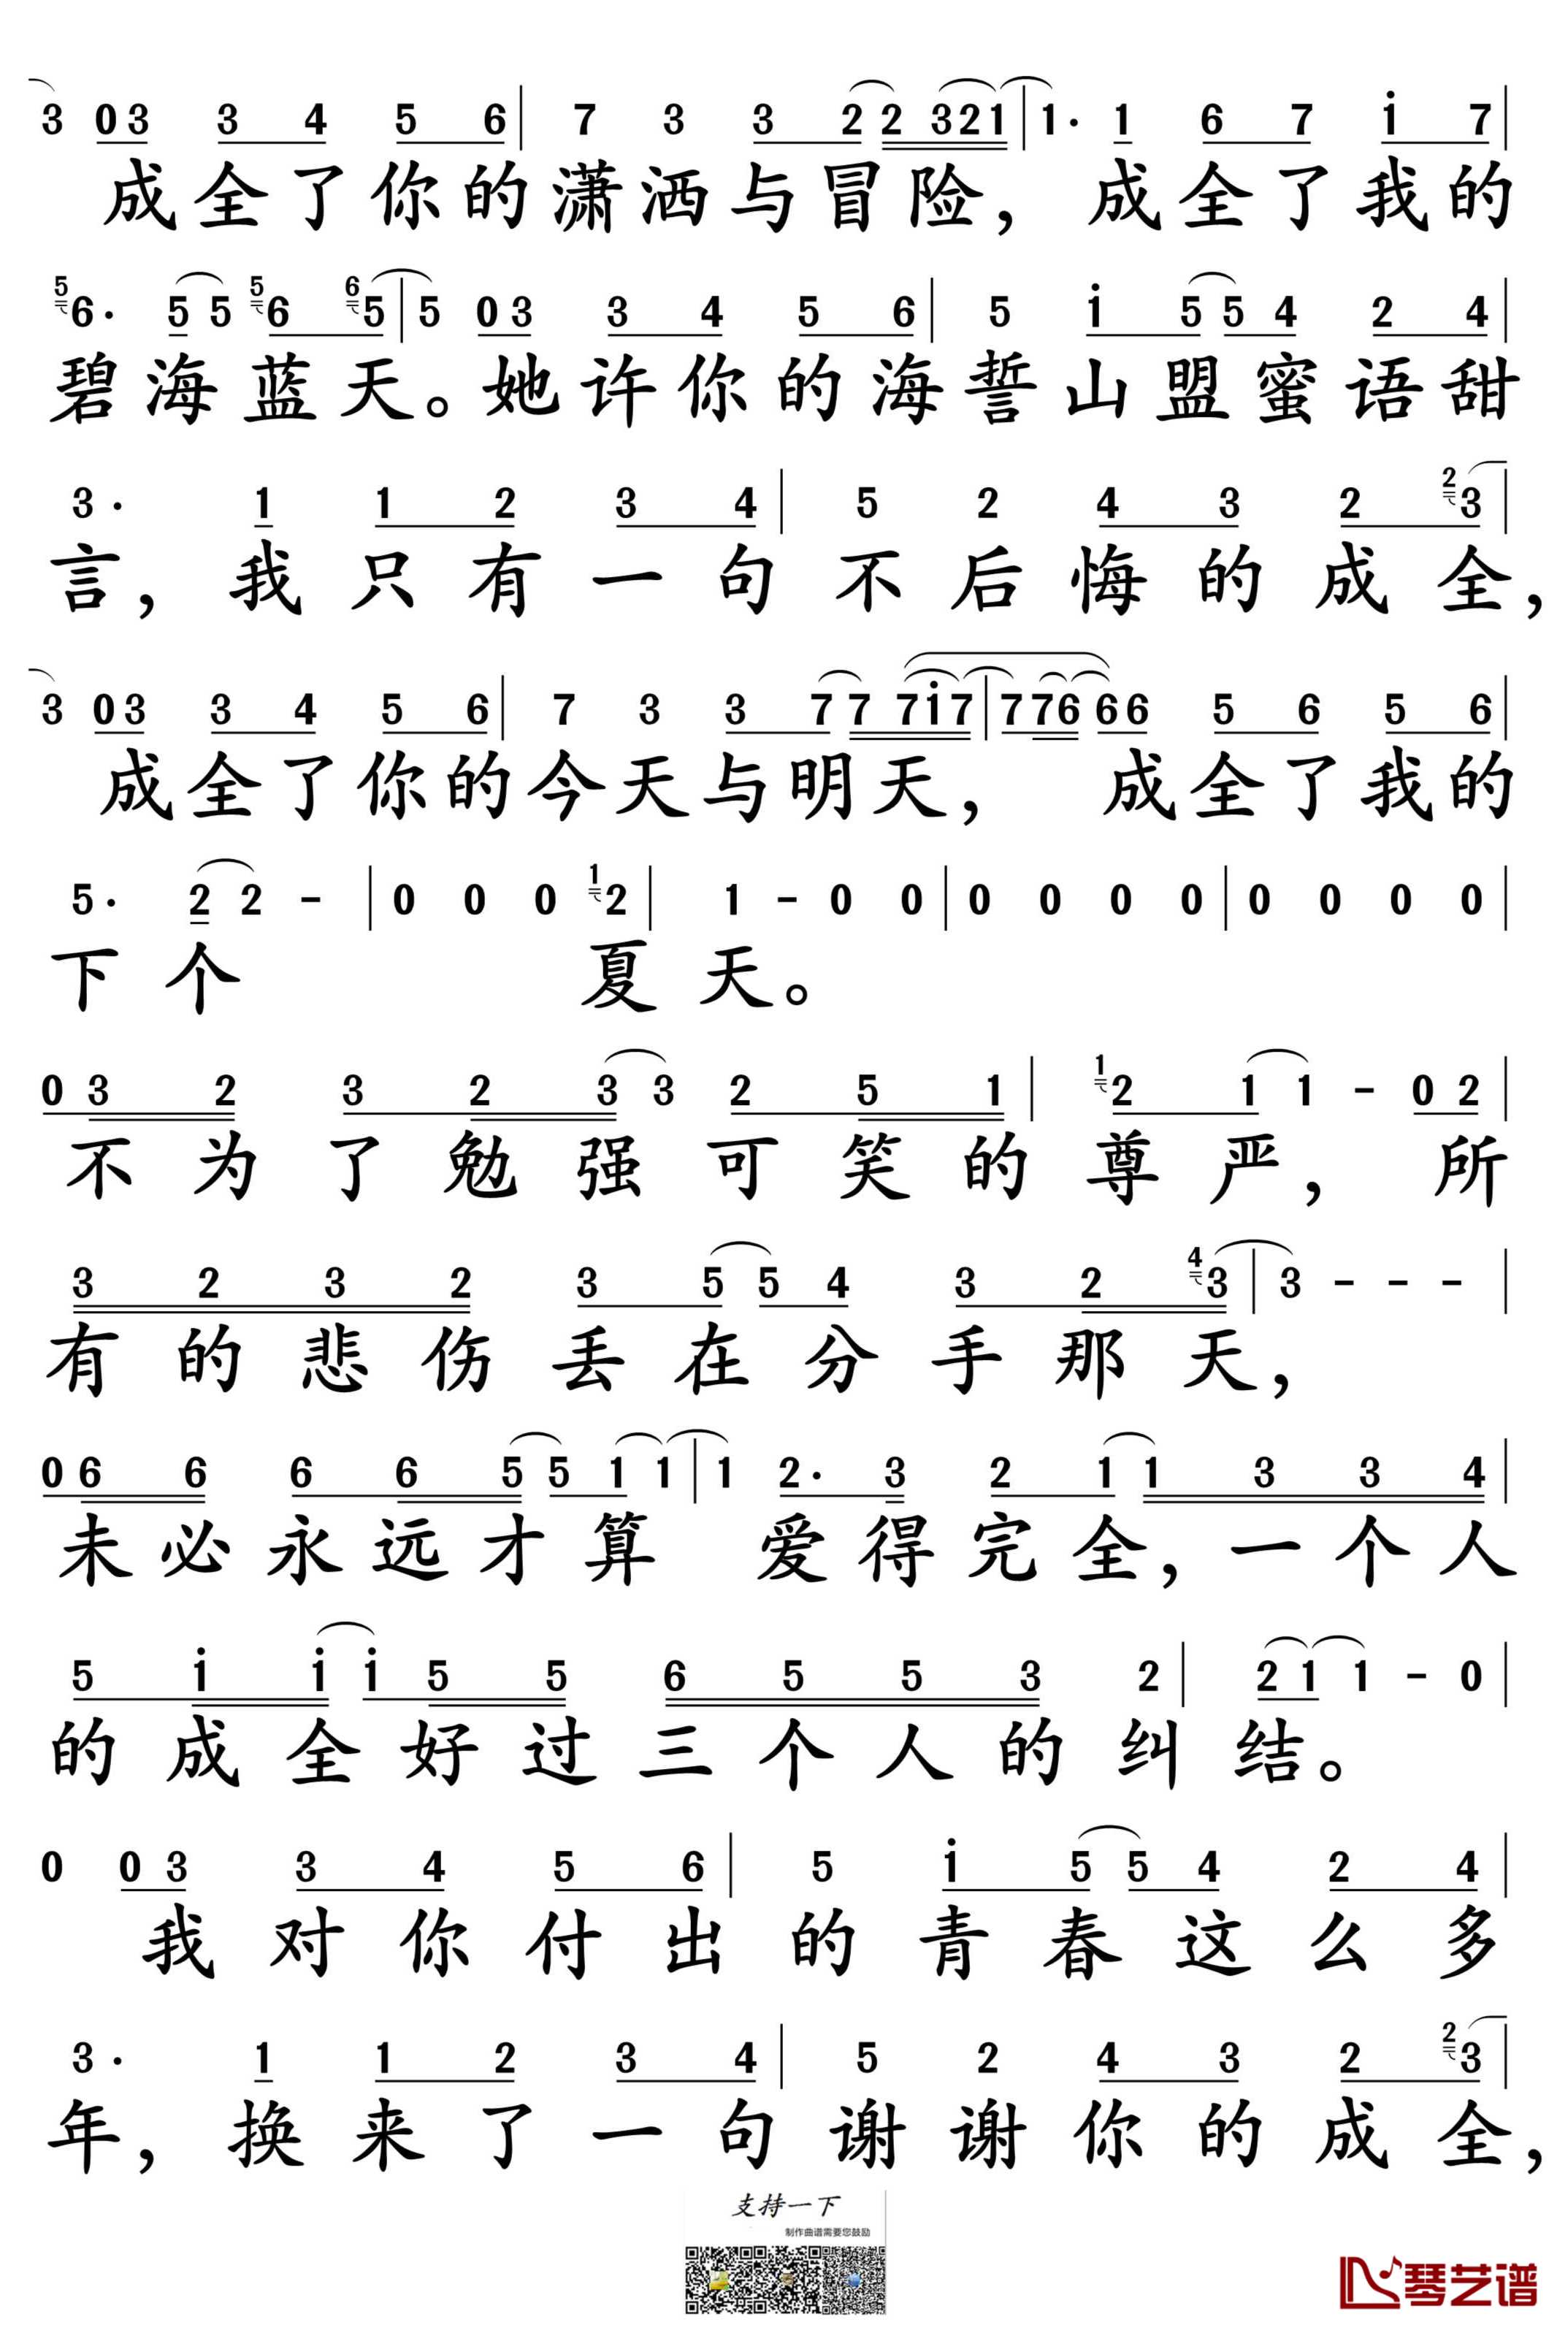 3 03 3 4 5 6 | 7 3 3 2 2 321 | 1· 1 6 7 i 7 |
成全了你的潇洒与冒险，成全了我的
5 6· 5 5 5 6 6 5 | 5 03 3 4 5 6 | 5 i 5 5 4 2 4 |
碧海蓝天。她许你的海誓山盟蜜语甜
3· 1 1 2 3 4 | 5 2 4 3 2 2 3 |
言，我只有一句不后悔的成全，
3 03 3 4 5 6 | 7 3 3 7 7 7i7 | 776 66 5 6 5 6 |
成全了你的今天与明天，成全了我的
5· 2 2 - | 0 0 0 1 2 | 1 - 0 0 | 0 0 0 0 | 0 0 0 0 |
下个夏天。
0 3 2 3 2 3 3 2 5 1 | 1 2 1 1 - 0 2 |
不为了勉强可笑的尊严，所
3 2 3 2 3 5 5 4 3 2 4 3 | 3 - - - |
有的悲伤丢在分手那天，
0 6 6 6 6 5 5 1 1 | 1 2· 3 2 1 1 3 3 4 |
未必永远才算爱得完全，一个人
5 i i i 5 5 6 5 5 3 2 | 2 1 1 - 0 |
的成全好过三个人的纠结。
0 0 3 3 4 5 6 | 5 i 5 5 4 2 4 |
我对你付出的青春这么多
3· 1 1 2 3 4 | 5 2 4 3 2 2 3 |
年，换来了一句谢谢你的成全，
支持一下
制作曲谱需要您鼓励
琴艺谱